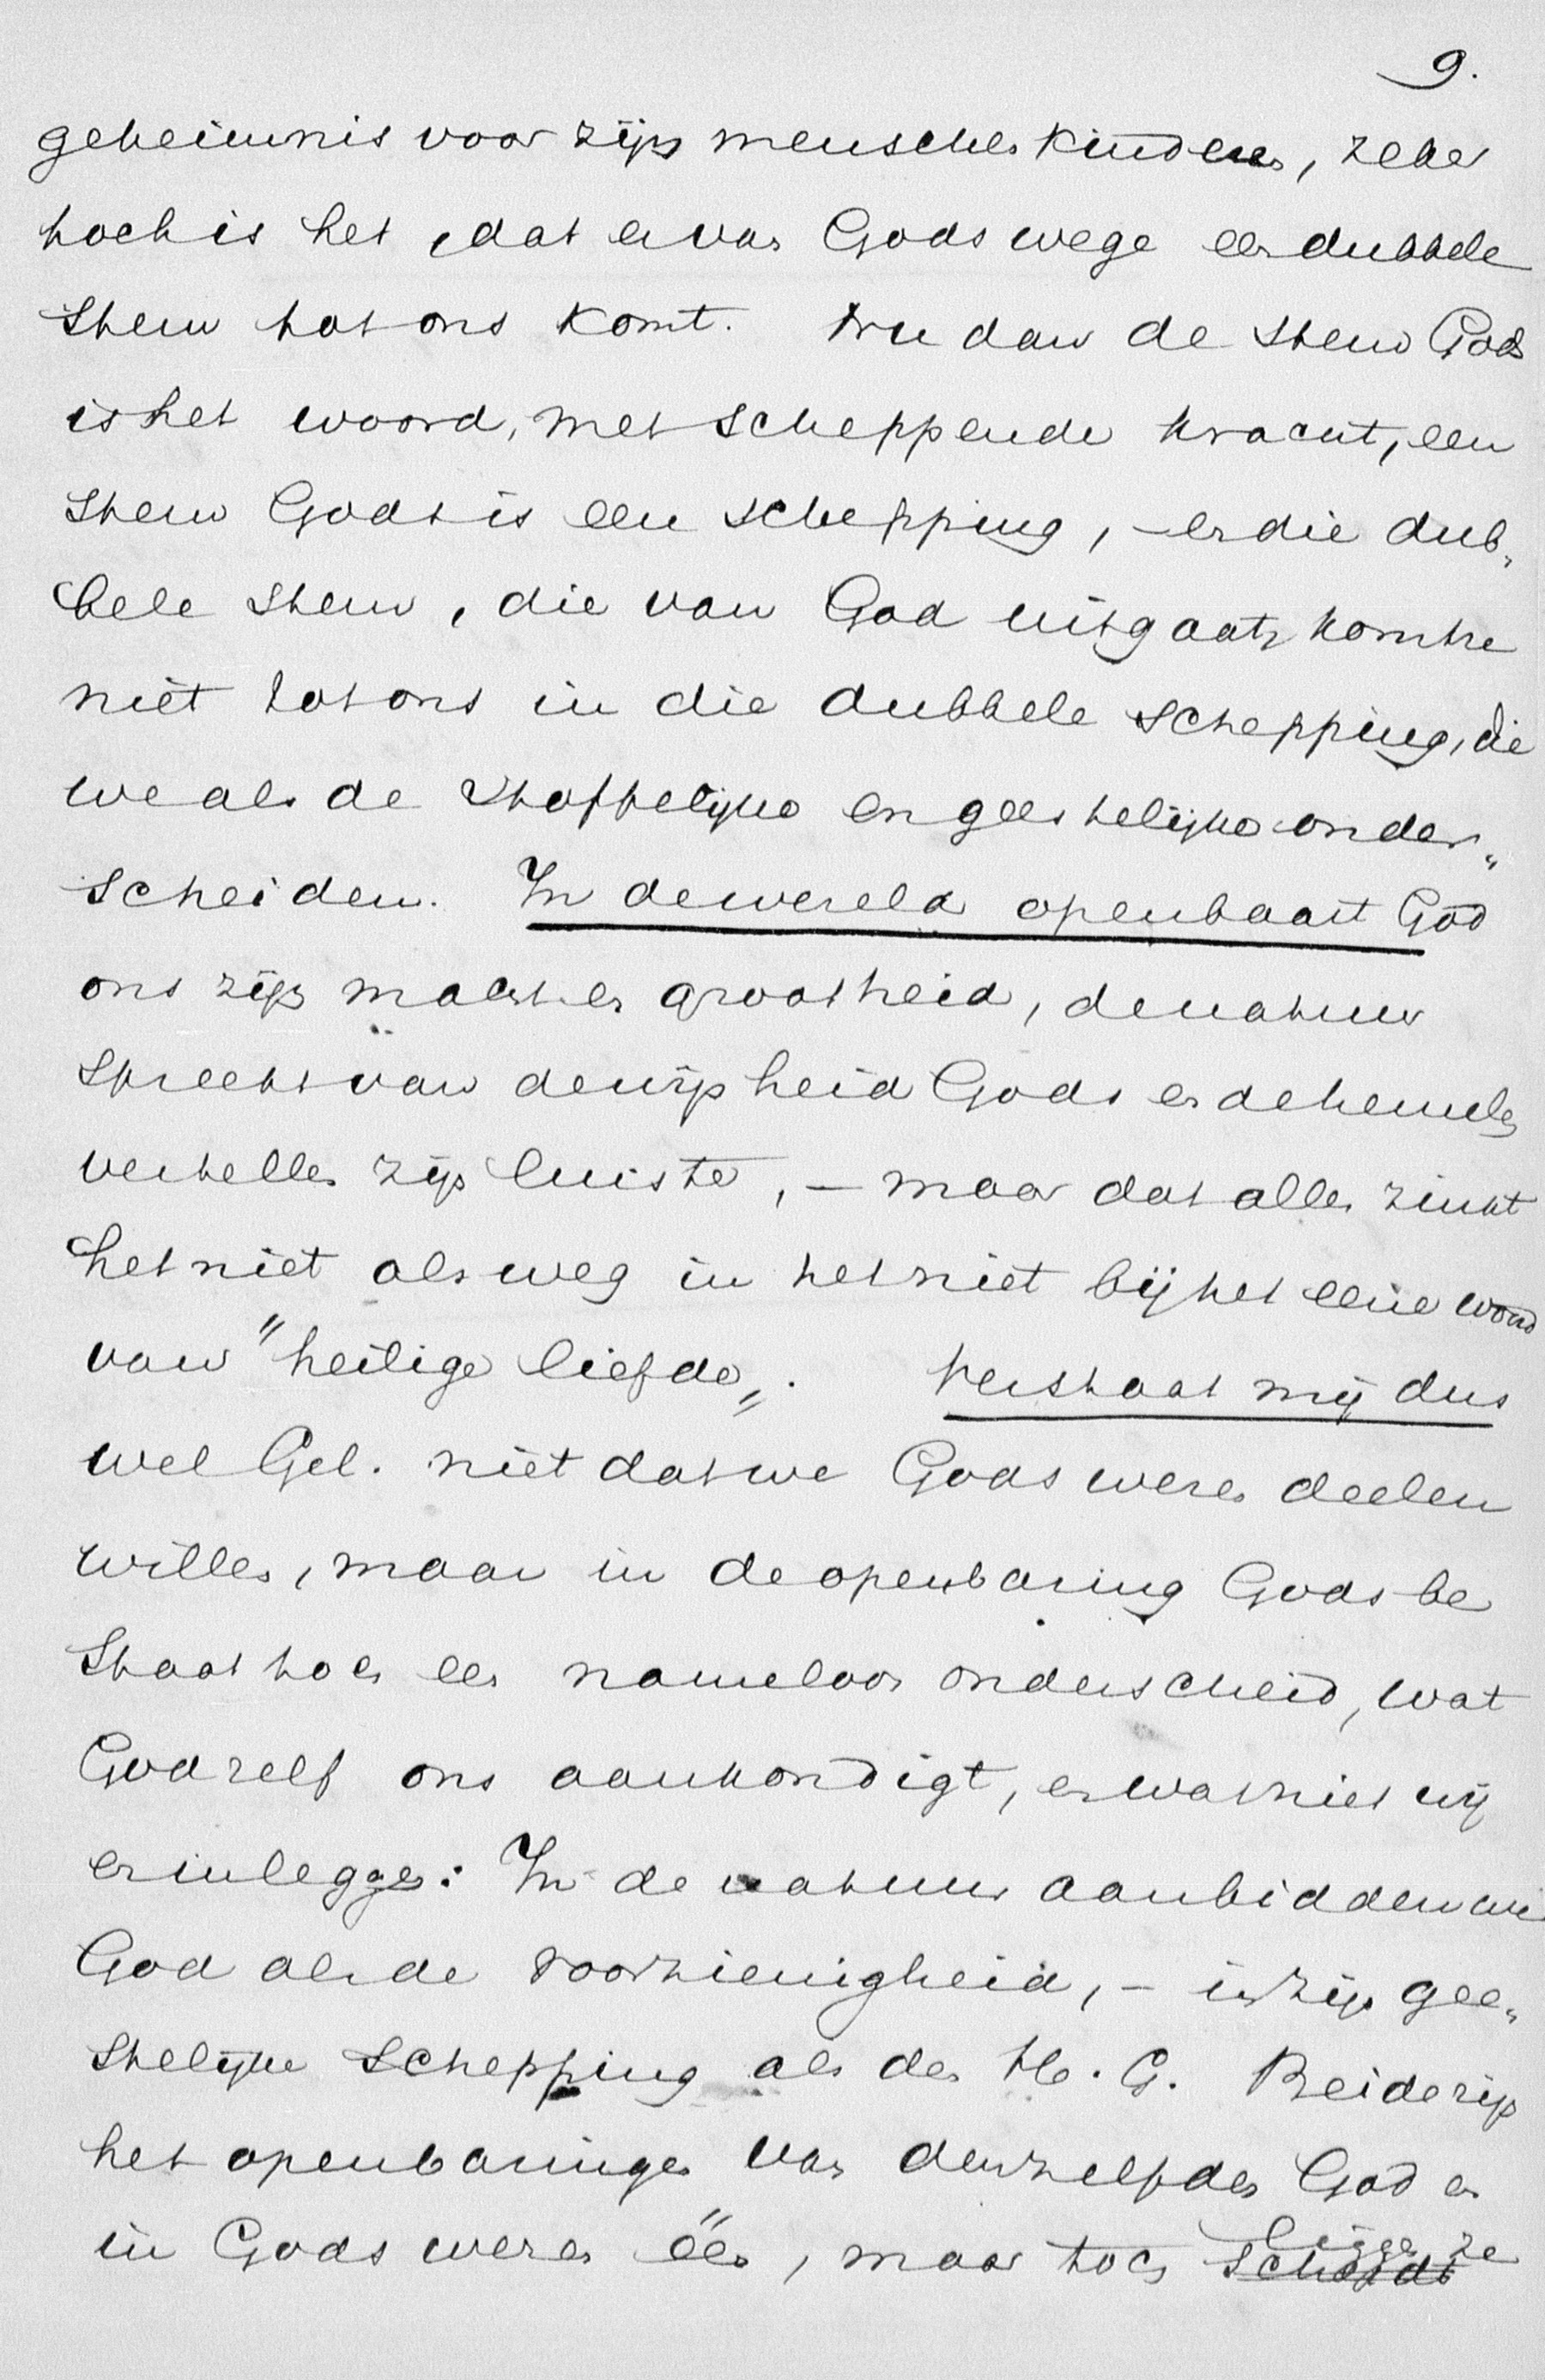 9.
geheimnis voor zijn menschenkinderen, zeker
toch is het, dat er van Godswege een dubbele
stem tot ons komt. Nu dan de stem Gods
is het woord, met scheppende kracht, een
stem Gods is een schepping, – en die dub„
bele stem, die van God uitgaat, komt ze
niet tot ons in die dubbele schepping, die
we als de stoffelijke en geestelijke onder„
scheiden. In de wereld openbaart God
ons zijn macht en grootheid, de natuur
spreekt van de wijsheid Gods en de hemelen
vertellen zijn luister, – maar dat alles zinkt
het niet als weg in het niet bij het eene woord
van "heilige liefde„. Verstaat mij dus
wel Gel. niet dat we Gods werken deelen
willen, maar in de openbaring Gods be
staat toch een nameloos onderscheid, wat
God zelf ons aankondigt, en wat niet wij
er inleggen: In de natuur aanbidden we
God als de voorzienigheid, – in zijn gee„
stelijke schepping als den H. G. Beide zijn
het openbaringen van denzelfden God en
in Gods werken één, maar toch liggen ze